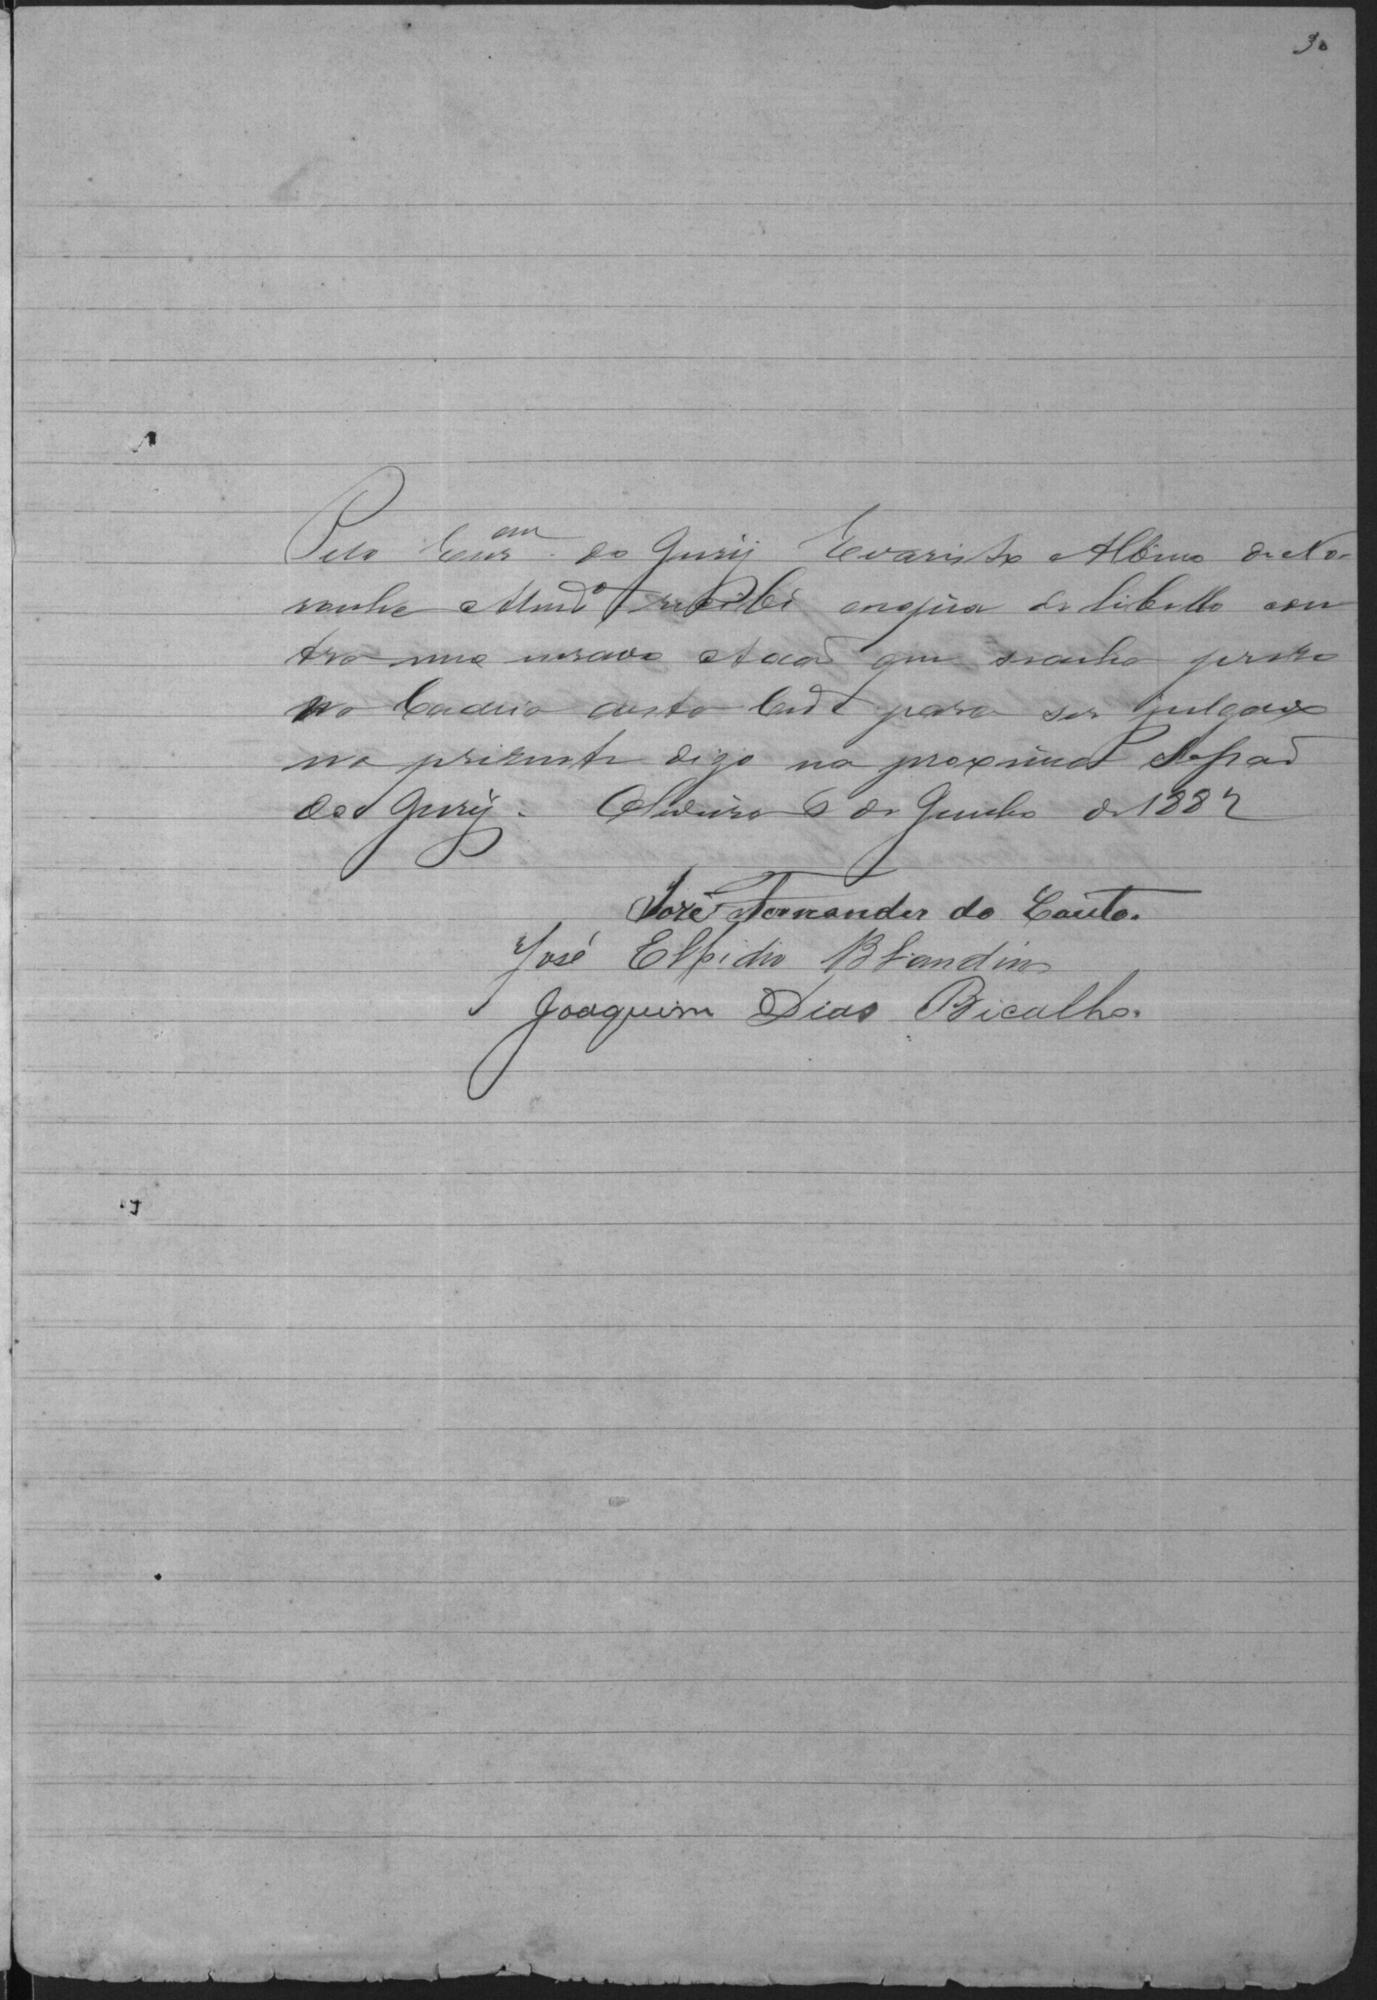 30
Pelo Escr.am do Jury Evaristo Albino de No-
ronha Alm.do recibi a copia do libello con
tra meo escravo Adão que se acha preso
na Cadeia desta Cid.e para ser julgado
na prizente digo na proxima Sessão
do Jury. Oliveira 6 de Junho de 1882
José Fernandes do Couto.
José Elpidio Blandino
Joaquim Dias Bicalho.